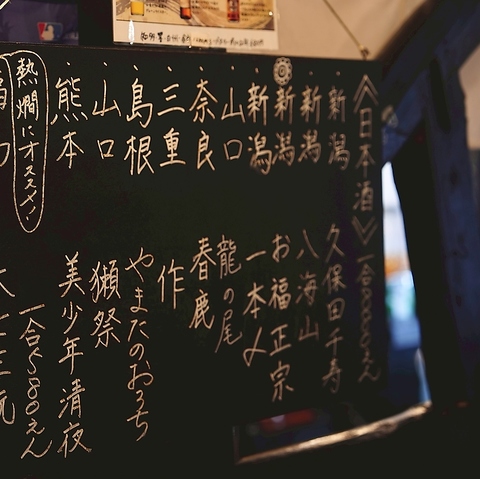 《日本酒》一合
新潟 久保田千寿
新潟 八海山
新潟 お福正宗
新潟 一本〆
山口 龍の尾
奈良 春鹿
三重 作
島根 やまたのおろち
山口 獺祭
熊本 美少年清夜
熱燗にオススメ! 一合580えん